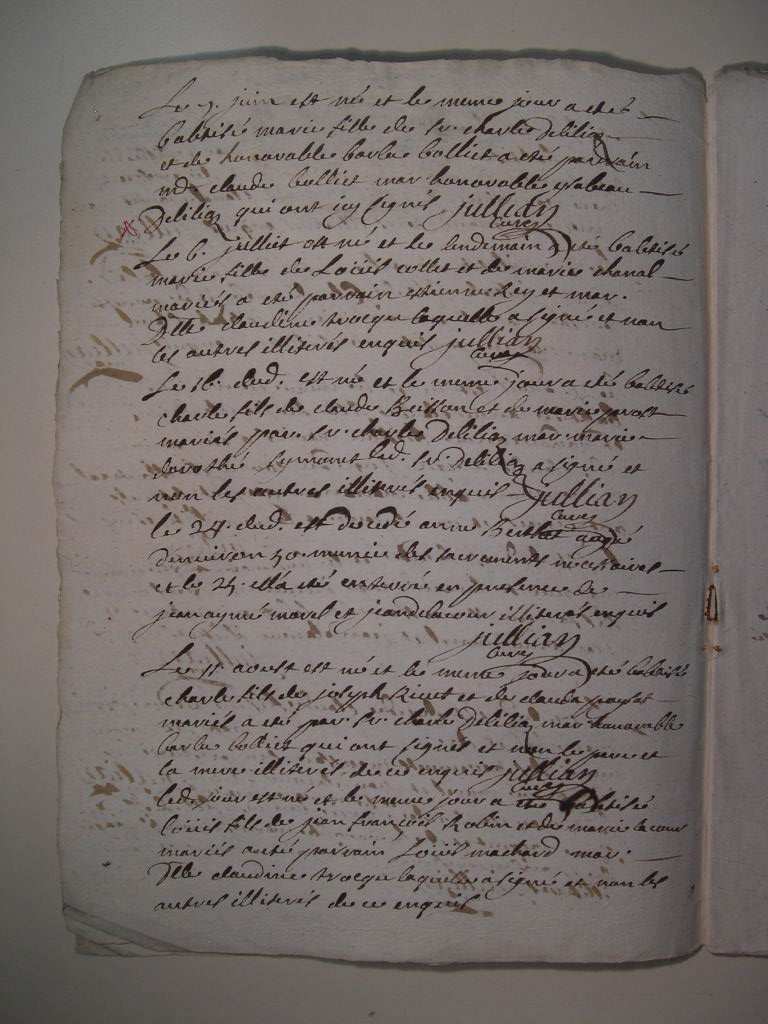 Le 7. juin est né et le meme jour a eté
babtisé marie fille de sr. charle Delilia
et de honorable barbe bolliet a eté parrain
md. claude bolliet mar honorable ysabeau
Delilia qui ont icy signés jullian
curé
Le 6. julliet est né et le lendemain a eté babtisé
marie fille de Loüis collet et de marie chanal
mariés a eté parrain estienne Rey et mar.
Dlle claudine trocqu laquelle a signé et non
les autres illiterés enquis jullian
curé
Le 16. dud. est né et le meme jour a eté babtisé
charle fils de claude Buisson et de marie
mariés par. sr. charle Delilia mar. marie
dorothé led. sr. Delilia a signé et
non les autres illiterés enquis jullian
curé
le 24. dud. est decedé anne Berthet augé
d'environ 50. munie des sacrements necessaires
et le 25. ella eté enterrée en presence de
jean aymé morel et jean delacour illiterés enquis
jullian
curé
Le 11 aoust est né et le meme jour a eté babtisé
charle fils de joseph et de clauda
mariés a eté par. sr. charle Delilia mar honorable
barbe bolliet qui ont signés et non le pere et
la mere illiterés de ce enquis jullian
curé
led. jour est né et le meme jour a eté babtisé
loüis fils de jean françois Robin et de marie lacour
mariés a eté parrain Loüis machard mar.
Dlle claudine trocqu laquelle a signé et non les
autres illiterés de ce enquis